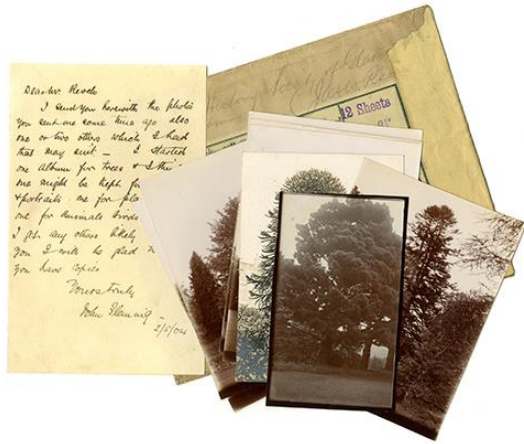 Dear Mr Reoch
I send you herewith the photos
you sent me some time ago also
one or two others which I had
that may suit — I started
one album for trees & I
one might be kept
& portraits one for
one for animals birds
I get any others likely
you I will be glad
you have copies
Yours truly
John Fleming
2/5/04
12 Sheets